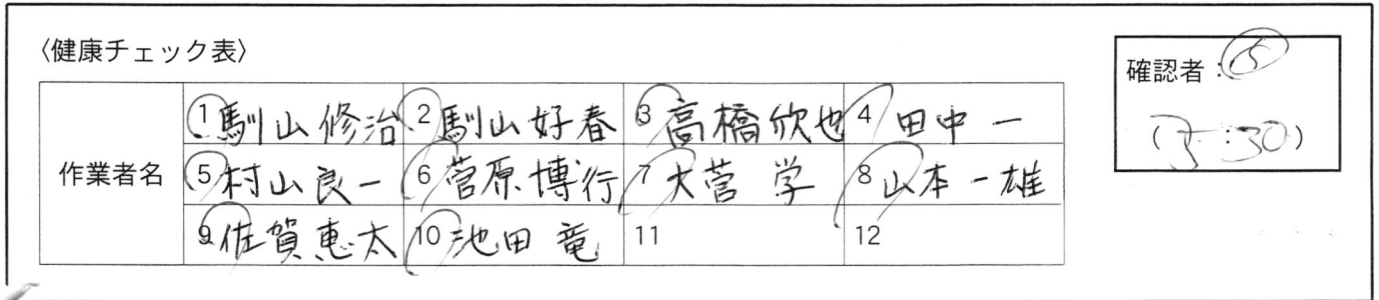 〈健康チェック表〉
確認者:⑤
(5:30)
作業者名
1 馴山修治 2 馴山好春 3 高橋欣也 4 田中一
5 村山良一 6 菅原博行 7 大菅 学 8 山本一雄
9 佐賀恵太 10 池田 竜 11 12